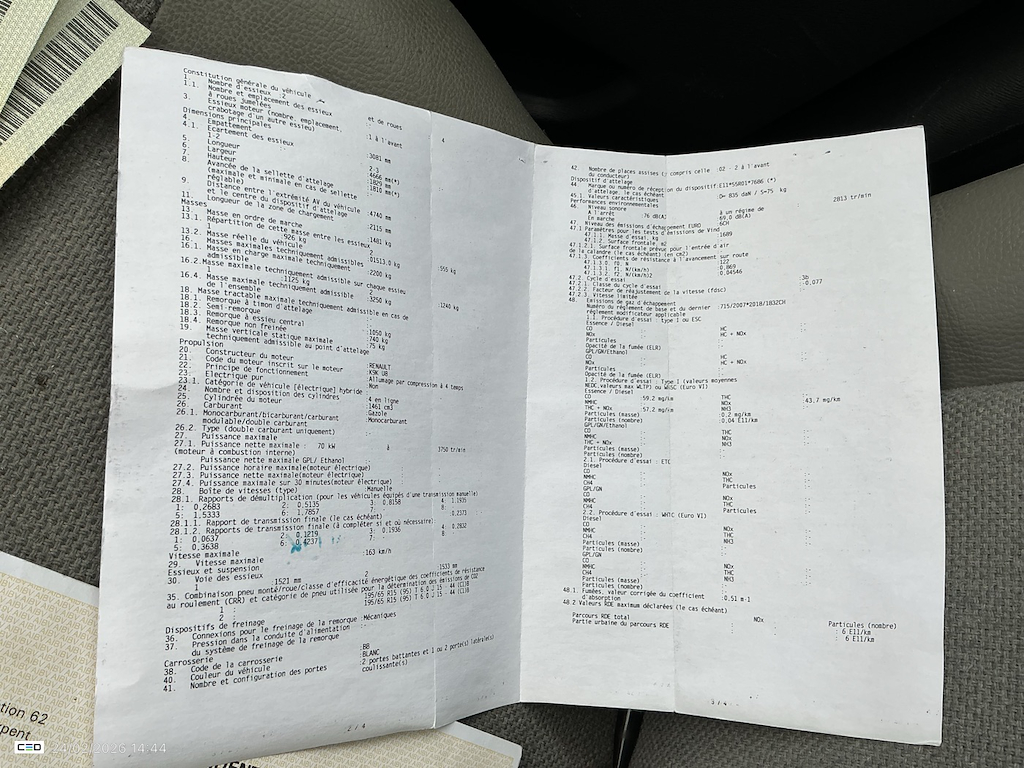 Constitution générale du véhicule
1. Nombre d'essieux :2 et de roues 4
1.1. Nombre et emplacement des essieux
à roues jumelées :-
3. Essieux moteur (nombre, emplacement,
crabotage d'un autre essieu) :1 à l'avant
Dimensions principales
4. Empattement :3081 mm
4.1. Ecartement des essieux
1-2 :- 2-3
5. Longueur :4666 mm(*)
6. Largeur :1829 mm
7. Hauteur :1810 mm(*)
8. Avancée de la sellette d'attelage
(maximale et minimale en cas de sellette
réglable) :-
9. Distance entre l'extrémité AV du véhicule
et le centre du dispositif d'attelage :4740 mm
11. Longueur de la zone de chargement :2115 mm
Masses
13. Masse en ordre de marche :1481 kg
13.1. Répartition de cette masse entre les essieux
1 :926 kg 2 :555 kg
13.2. Masse réelle du véhicule :01513.0 kg
16. Masses maximales techniquement admissibles
16.1. Masse en charge maximale techniquement
admissible :2200 kg
16.2. Masse maximale techniquement admissible sur chaque essieu
1 :1125 kg 2 :1240 kg
16.4. Masse maximale techniquement admissible
de l'ensemble :3250 kg
18. Masse tractable maximale techniquement admissible en cas de
18.1. Remorque à timon d'attelage :-
18.2. Semi-remorque :-
18.3. Remorque à essieu central :1050 kg
18.4. Remorque non freinée :740 kg
19. Masse verticale statique maximale
techniquement admissible au point d'attelage :75 kg
Propulsion
20. Constructeur du moteur :RENAULT
21. Code du moteur inscrit sur le moteur :K9K U8
22. Principe de fonctionnement :Allumage par compression à 4 temps
23. Electrique pur :Non
23.1. Catégorie de véhicule [électrique] hybride :-
24. Nombre et disposition des cylindres :4 en ligne
25. Cylindrée du moteur :1461 cm3
26. Carburant :Gazole
26.1. Monocarburant/bicarburant/carburant
modulable/double carburant :Monocarburant
26.2. Type (double carburant uniquement) :-
27. Puissance maximale
27.1. Puissance nette maximale : 70 kW à 3750 tr/min
(moteur à combustion interne)
Puissance nette maximale GPL/ Ethanol :-
27.2. Puissance horaire maximale(moteur électrique)
27.3. Puissance nette maximale(moteur électrique)
27.4. Puissance maximale sur 30 minutes(moteur électrique)
28. Boîte de vitesses (type) :Manuelle
28.1. Rapports de démultiplication (pour les véhicules équipés d'une transmission manuelle)
1: 0.2683 2: 0.5135 3: 0.8158 4: 1.1935
5: 1.5333 6: 1.7857 7: - 8: -
28.1.1. Rapport de transmission finale (le cas échéant) :0.2373
28.1.2. Rapports de transmission finale (à compléter si et où nécessaire)
1: 0.0637 2: 0.1219 3: 0.1936 4: 0.2832
5: 0.3638 6: 0.4237 7: - 8:
Vitesse maximale
29. Vitesse maximale :163 km/h
Essieux et suspension
30. Voie des essieux
1 :1521 mm 2 :1533 mm
35. Combinaison pneu monté/roue/classe d'efficacité énergétique des coefficients de résistance
au roulement (CRR) et catégorie de pneu utilisée pour la détermination des émissions de CO2
1 : 195/65 R15 (95) T 6.0 J 15 - 44 (C)B
2 : 195/65 R15 (95) T 6.0 J 15 - 44 (C)B
Dispositifs de freinage
36. Connexions pour le freinage de la remorque :Mécaniques
37. Pression dans la conduite d'alimentation
du système de freinage de la remorque :-
Carrosserie
38. Code de la carrosserie :BB
40. Couleur du véhicule :BLANC
41. Nombre et configuration des portes :2 portes battantes et 1 ou 2 porte(s) latérale(s)
coulissante(s)
2 / 4
42. Nombre de places assises (y compris celle :02 - 2 à l'avant
du conducteur)
Dispositif d'attelage
44. Marque ou numéro de réception du dispositif:E11*55R01*7686 (*)
d'attelage, le cas échéant
45.1. Valeurs caractéristiques :D= 835 daN / S=75 kg
Performances environnementales
46. Niveau sonore
A l'arrêt 76 dB(A) à un régime de 2813 tr/min
En marche 69.0 dB(A)
47. Niveau des émissions d'échappement EURO 6CH
47.1 Paramètres pour les tests d'émissions de Vind
47.1.1. Masse d'essai, kg 1689
47.1.2. Surface frontale, m2
47.1.2.1. Surface frontale prévue pour l'entrée d'air
de la calandre (le cas échéant) (en cm2)
47.1.3. Coefficients de résistance à l'avancement sur route
47.1.3.0. f0, N 122
47.1.3.1. f1, N/(km/h) 0.869
47.1.3.2. f2, N/(km/h)2 0.04546
47.2. Cycle d'essai
47.2.1. Classe du cycle d'essai :3b
47.2.2. Facteur de réajustement de la vitesse (fdsc) :-0.077
47.2.3. Vitesse limitée
48. Emissions de gaz d'échappement
Numéro du règlement de base et du dernier :715/2007*2018/1832CH
règlement modificateur applicable
1.1. Procédure d'essai: type I ou ESC
Essence / Diesel
CO :- HC :-
NOx :- HC + NOx :-
Particules :-
Opacité de la fumée (ELR) :-
GPL/GN/Ethanol
CO :- HC :-
NOx :- HC + NOx :-
Particules :-
Opacité de la fumée (ELR) :-
1.2. Procédure d'essai: Type I (valeurs moyennes
NEDC,valeurs max WLTP) ou WHSC (Euro VI)
Essence / Diesel
CO :59.2 mg/km THC :-
NMHC :- NOx :43.7 mg/km
THC + NOx :57.2 mg/km NH3 :-
Particules (masse) :0.2 mg/km
Particules (nombre) :0.04 E11/km
GPL/GN/Ethanol
CO :- THC :-
NMHC :- NOx :-
THC + NOx :- NH3 :-
Particules (masse) :-
Particules (nombre) :-
2.1. Procédure d'essai : ETC
Diesel
CO :- NOx :-
NMHC :- THC :-
CH4 :- Particules :-
GPL/GN
CO :- NOx :-
NMHC :- THC :-
CH4 :- Particules :-
2.2. Procédure d'essai : WHTC (Euro VI)
Diesel
CO :- NOx :-
NMHC :- THC :-
CH4 :- NH3 :-
Particules (masse) :-
Particules (nombre) :-
GPL/GN
CO :- NOx :-
NMHC :- THC :-
CH4 :- NH3 :-
Particules (masse) :-
Particules (nombre) :-
48.1. Fumées, valeur corrigée du coefficient
d'absorption :0.51 m-1
48.2 Valeurs RDE maximum déclarées (le cas échéant)
NOx Particules (nombre)
Parcours RDE total :- : 6 E11/km
Partie urbaine du parcours RDE :- : 6 E11/km
3 / 4
tion 62
pent
CEO 24/02/2026 14:44